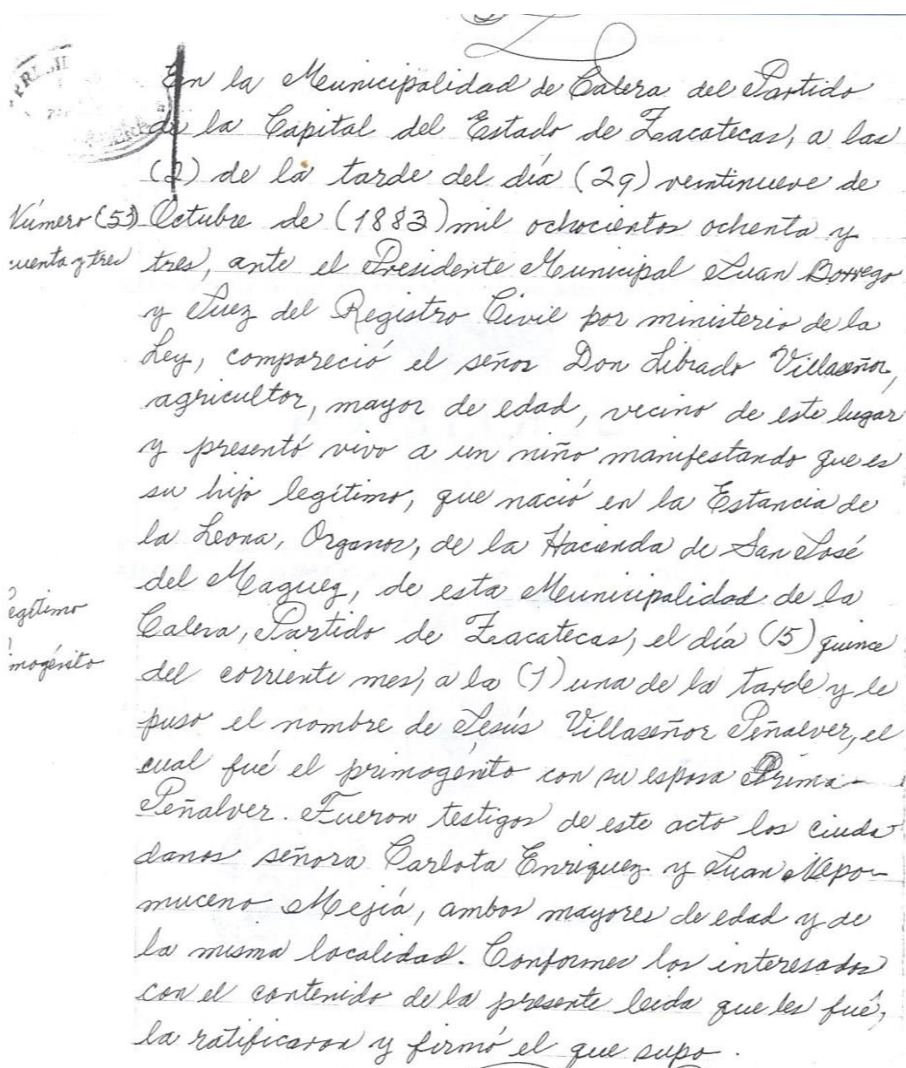 En la Municipalidad de Calera del Partido
de la Capital del Estado de Zacatecas, a las
(2) de la tarde del día (29) veintinueve de
Número (53) Octubre de (1883) mil ochocientos ochenta y
cuenta y tres tres, ante el Presidente Municipal Juan Borrego
y Juez del Registro Civil por ministerio de la
Ley, compareció el señor Don Librado Villaseñor,
agricultor, mayor de edad, vecino de este lugar
y presentó vivo a un niño manifestando que es
su hijo legítimo, que nació en la Estancia de
la Leona, Organos, de la Hacienda de San José
del Maguey, de esta Municipalidad de la
egítimo
Calera, Partido de Zacatecas, el día (15) quince
mogénito
del corriente mes, a la (1) una de la tarde y le
puso el nombre de Jesús Villaseñor Peñalver, el
cual fué el primogénito con su esposa Prima
Peñalver. Fueron testigos de este acto los ciuda-
danos señora Carlota Enriquez y Juan Nepo-
muceno Mejía, ambos mayores de edad y de
la misma localidad. Conformes los interesados
con el contenido de la presente leida que les fué,
la ratificaron y firmó el que supo.